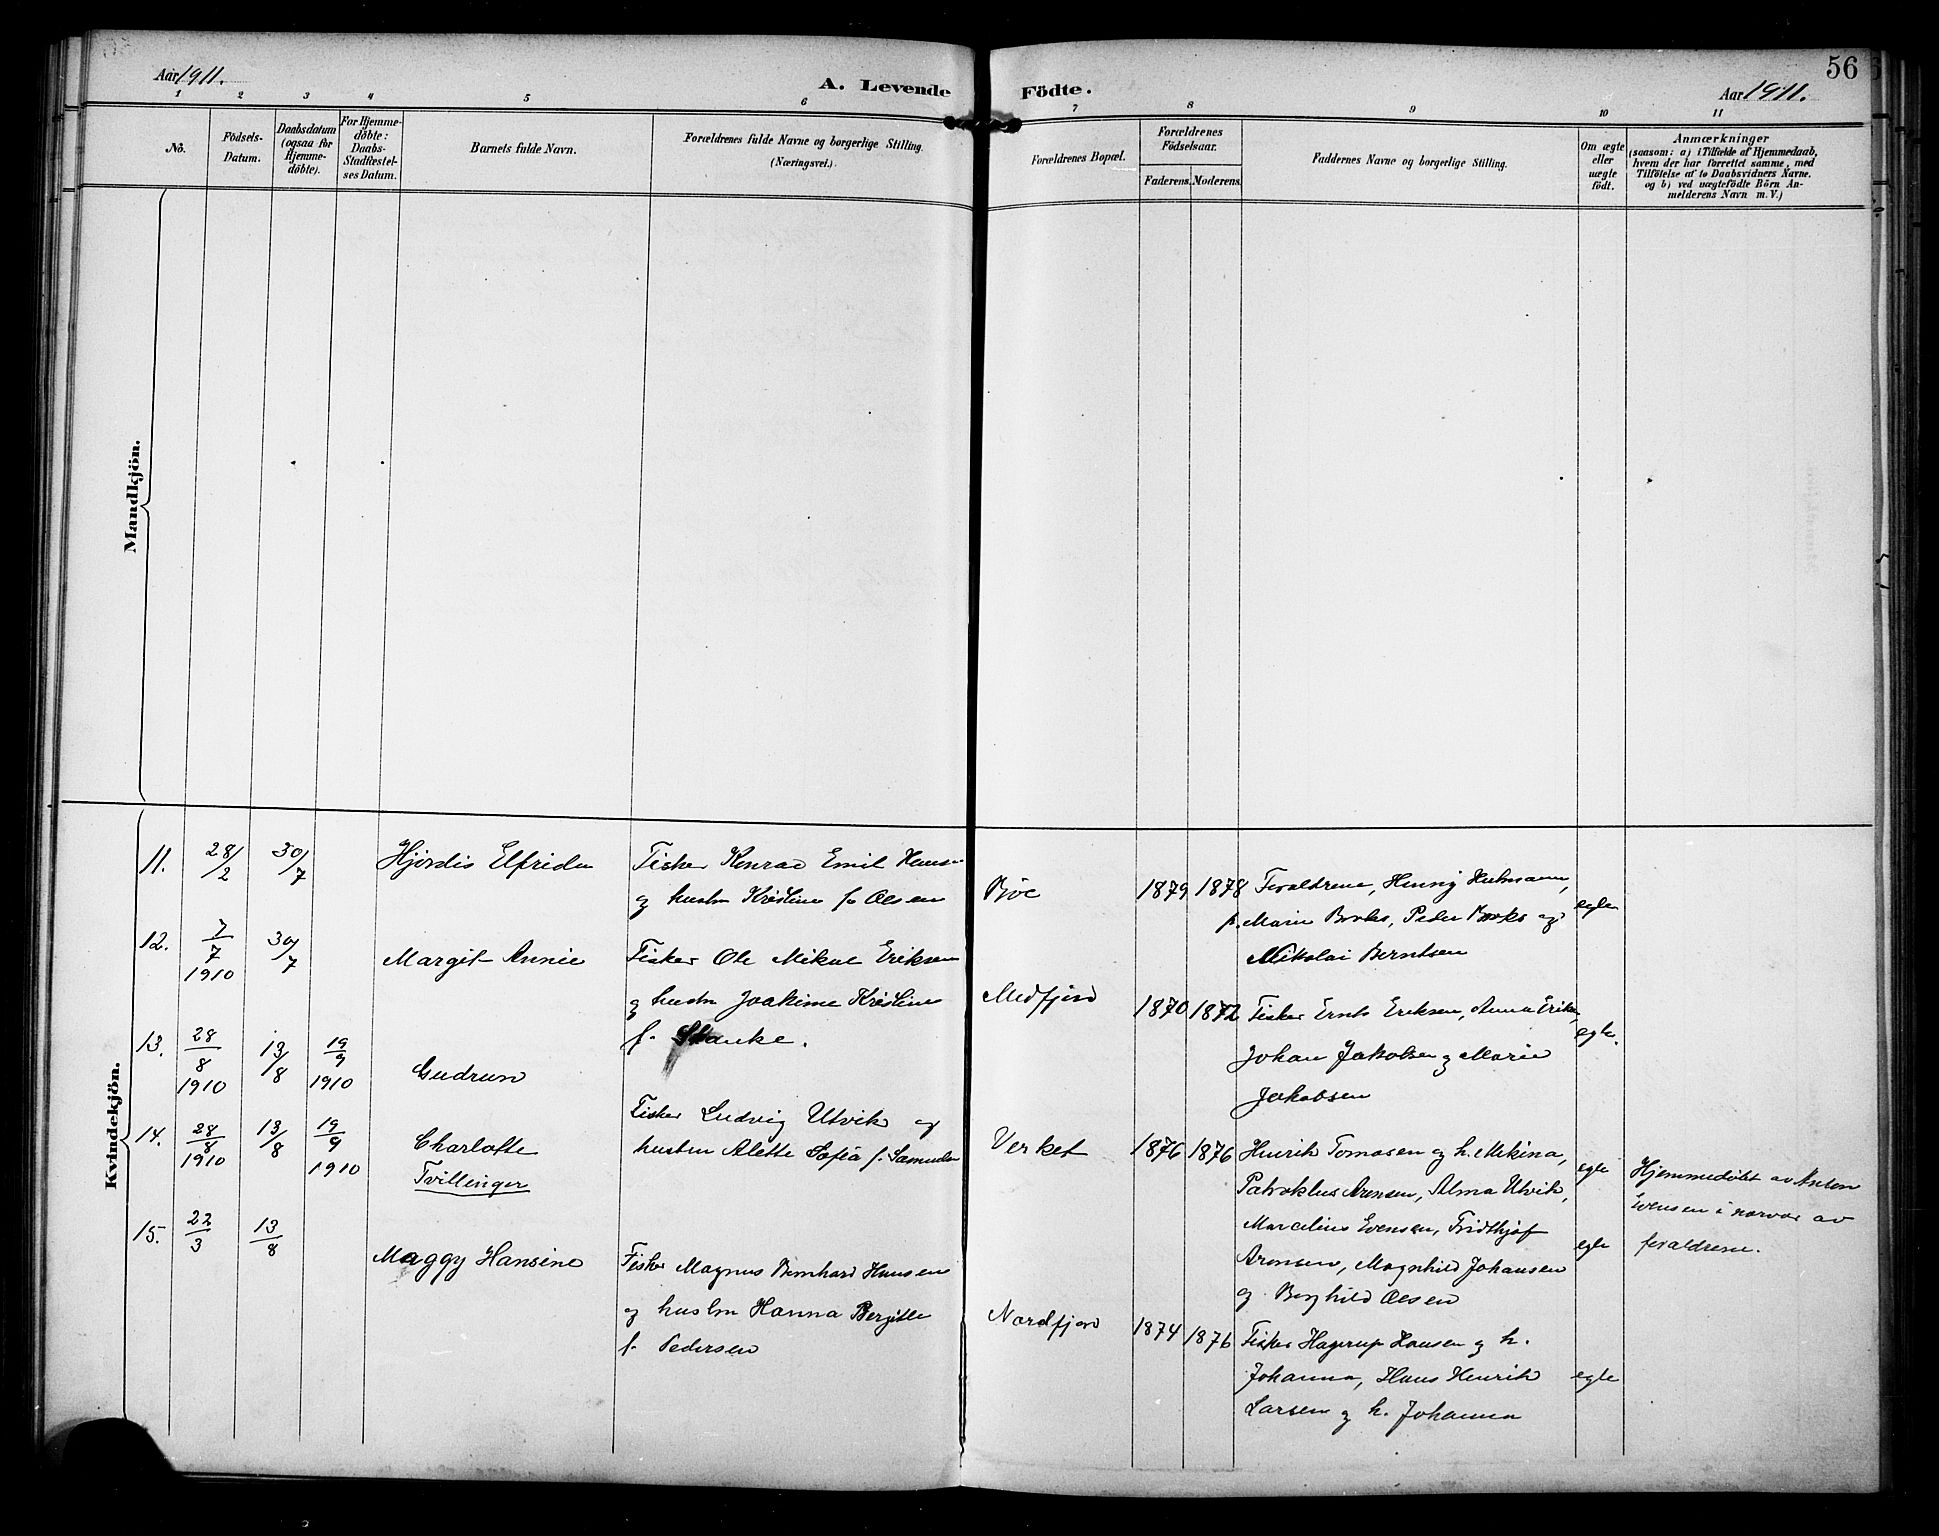 56
Aar 1911.
A. Levende Födte.
Aar 1911.
1 2 3 4 5 6 7 8 9 10 11
No.
Födsels-
Datum.
Daabsdatum
(ogsaa for
Hjemme-
döbte).
For Hjemme-
döbte:
Daabs-
Stadfæstel-
ses Datum.
Barnets fulde Navn.
Forældrenes fulde Navne og borgerlige Stilling.
(Næringsvei.)
Forældrenes Bopæl.
Forældrenes
Födselsaar.
Faderens. Moderens.
Faddernes Navne og borgerlige Stilling.
Om ægte
eller
uægte
födt.
Anmærkninger
(saasom: a) i Tilfælde af Hjemmedaab,
hvem der har forrettet samme, med
Tilföielse af to Daabsvidners Navne.
og b) ved uægtefödte Börn An-
melderens Navn m. V.)
Mandkjön.
Kvindekjön.
11. 28/2 30/7 Hjørdis Elfrida
Fisker Konrad Emil Hansen
og hustru Kristine f. Olsen
Bøe 1879 1878
Forældrene, Henny
p. Marie Peder og
Nikolai Berntsen
egte
12. 7/7 1910 30/7 Margit Annie
Fisker Ole Mikal Eriksen
og hustru Joakime Kristine
f. Stanke.
Medfjord 1870 1872
Fisker Ernts Eriksen, Anna Eriksen,
Johan Jakobsen og Marie
Jakobsen
egte.
13. 28/8 1910 13/8 19/9 1910 Gudrun
14. 28/8 1910 13/8 19/9 1910 Charlotte
Tvillinger
Fisker Ludvig Utvik og
hustru Alette Sofia f. Samuelsen
Verket 1876 1876
Henrik Tomasen og h. Mekina,
Patroklus Arensen, Alma Utvik,
Marcelius Evensen, Fridthjof
Arensen, Magnhild Johansen
og Borghild Olsen
egte
egte
Hjemmedøbt av Anton
Evensen i nærvær av
forældrene.
15. 22/3 13/8 Maggy Hansine
Fisker Magnus Bernhard Hansen
og hustru Hanna Bergitte
f. Pedersen
Nordfjord 1874 1876
Fisker Hagerup Hansen og h.
Johanna, Hans Henrik
Larsen og h. Johanna
egte